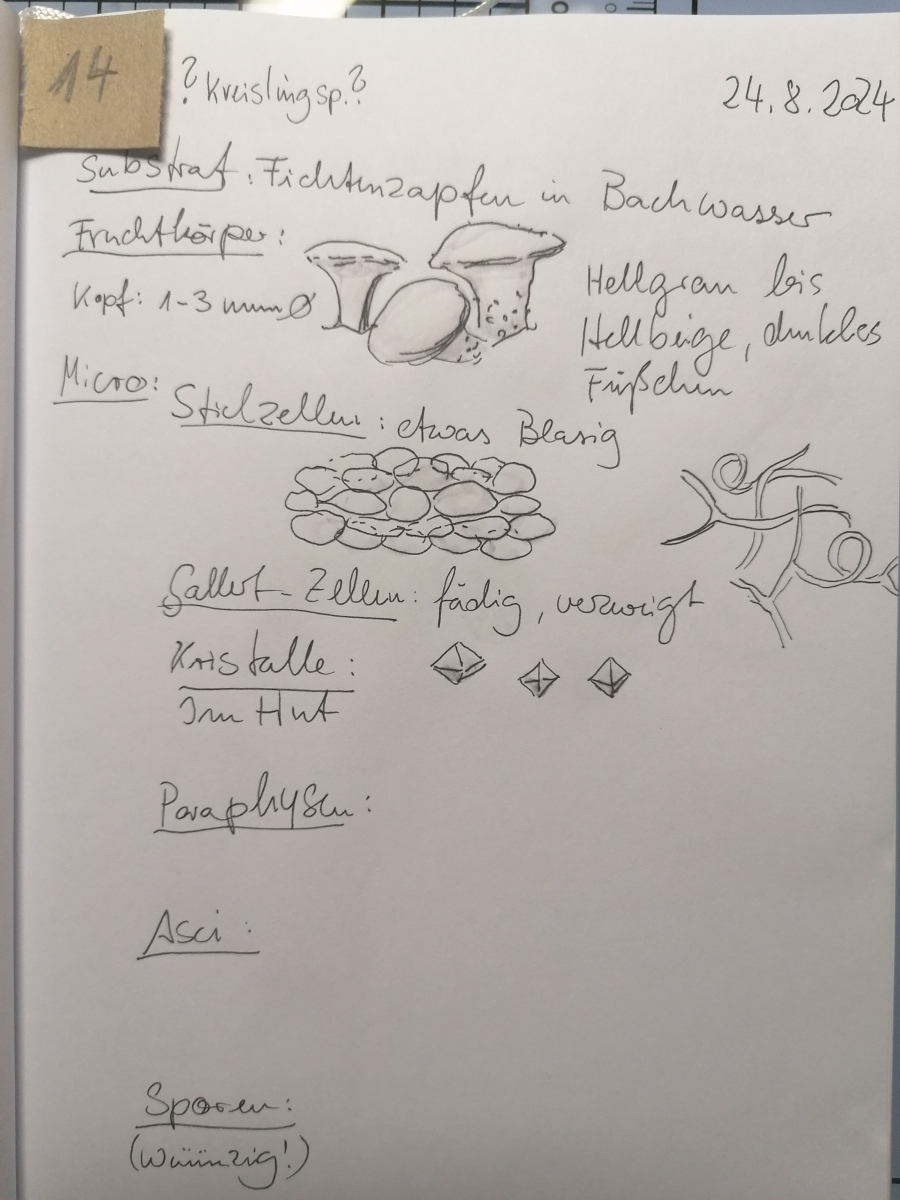 14
? Kreisling sp. ?
24.8.2024
Substrat: Fichtenzapfen in Bachwasser
Fruchtkörper:
Kopf: 1-3 mm Ø
Hellgrau bis
Hellbeige, dunkles
Füßchen
Micro:
Stielzellen: etwas Blasig
Gallert-Zellen: fädig, verzweigt
Kristalle:
Im Hut
Paraphysen:
Asci:
Sporen:
(Wüünzig!)